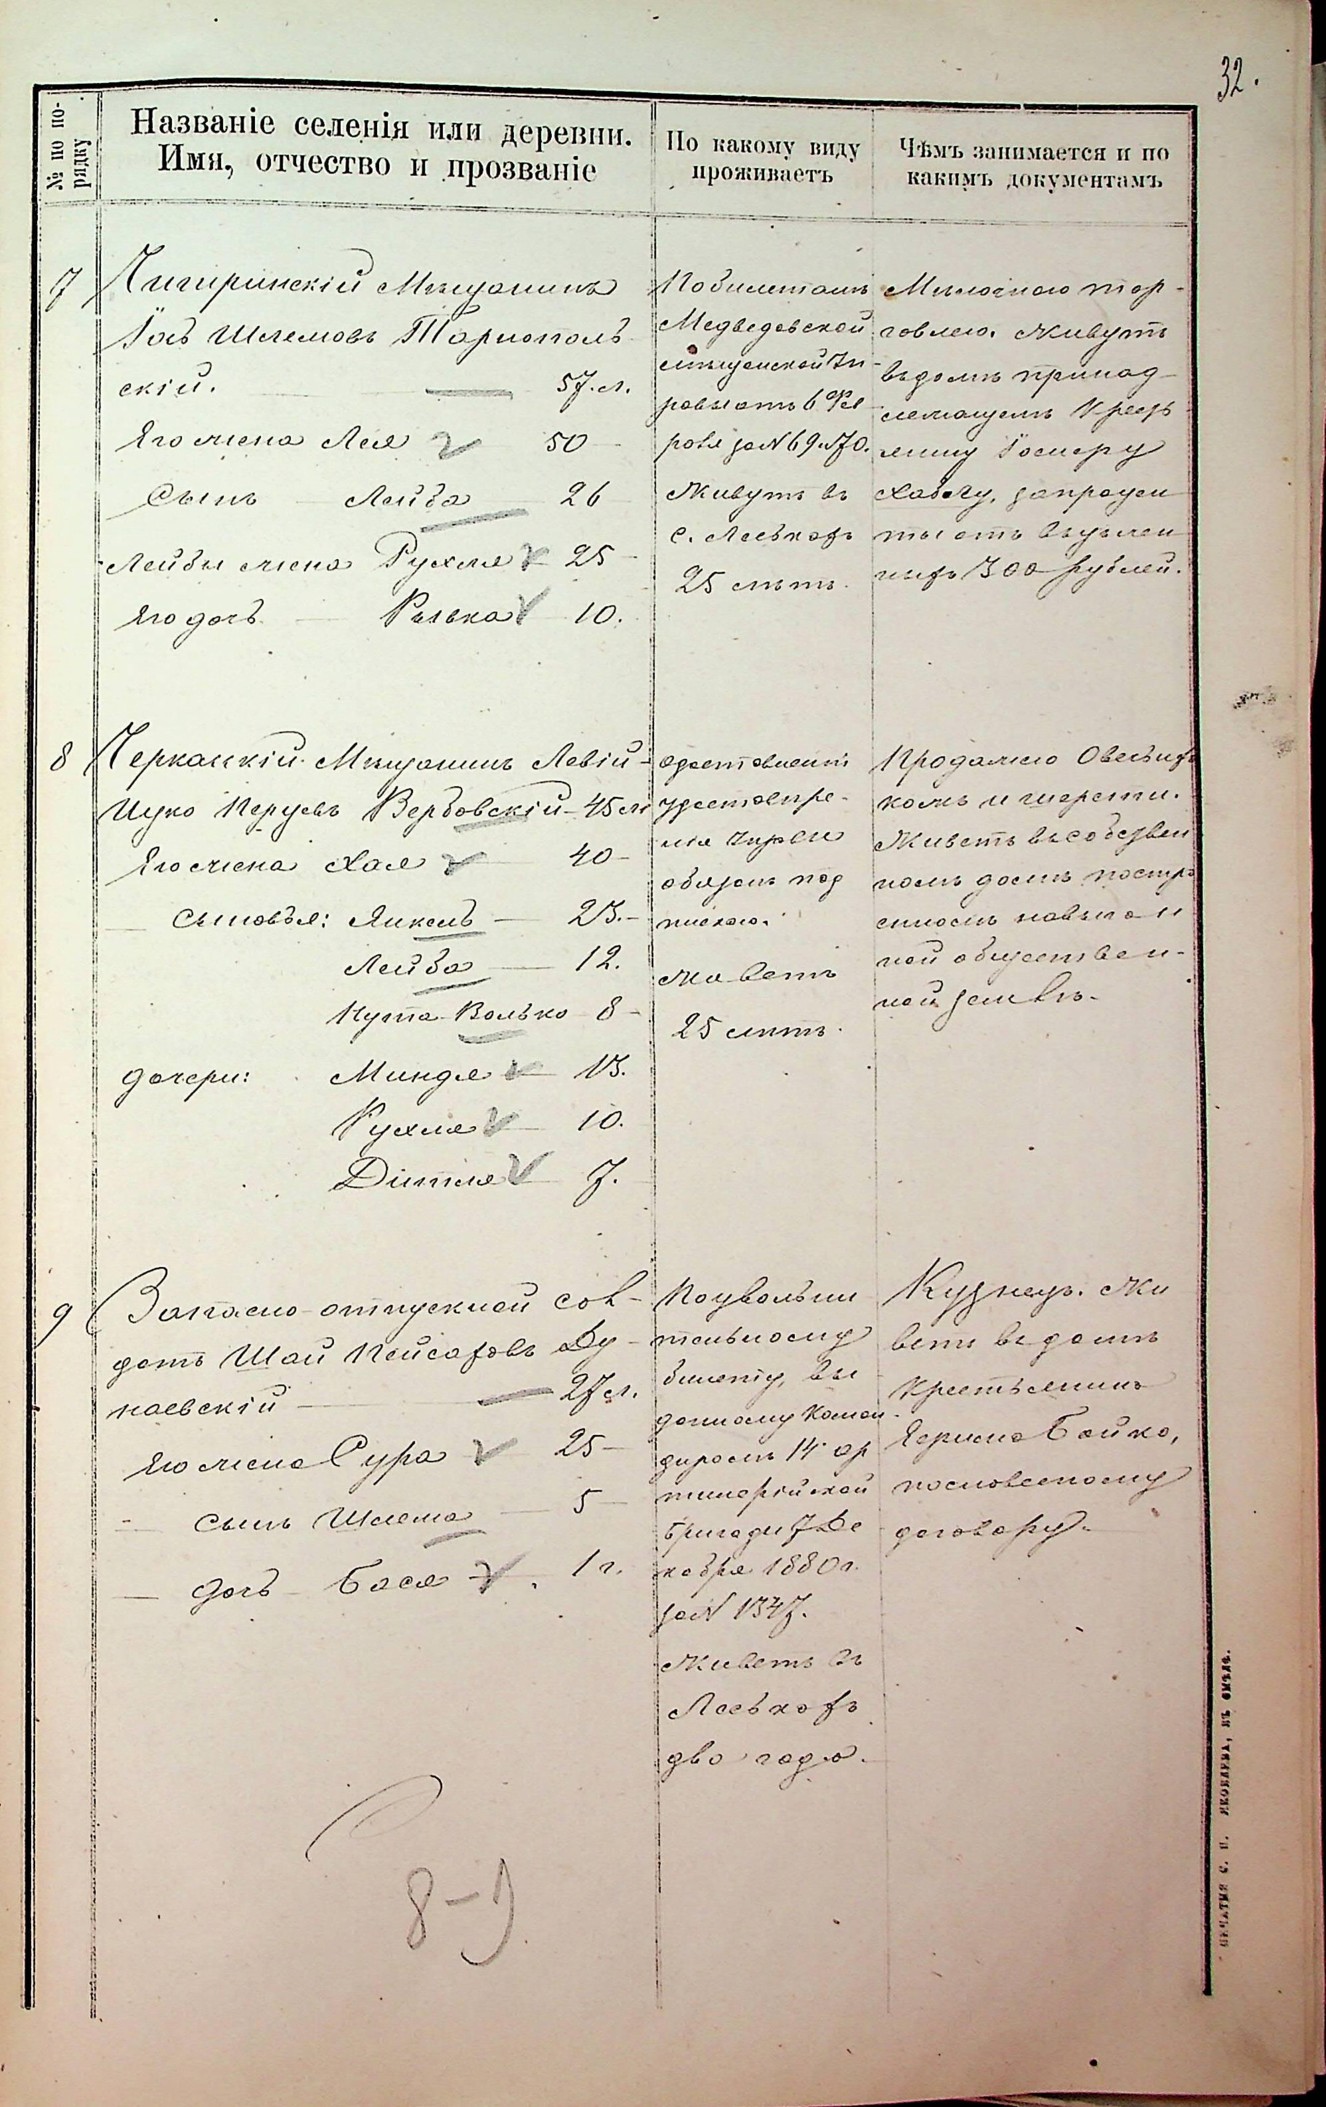 32.
№ по по-
рядку
Названіе селенія или деревни.
Имя, отчество и прозваніе
По какому виду
проживаетъ
Чѣмъ занимается и по
какимъ документамъ
7
Чигиринскій Мѣщанинъ
Іось Шлемовъ Тарнополь
скій. — 57 л.
Его жена Лея 50
Сынъ Лейба 26
Лейбы жена Рухля 25
Его дочь Рывка 10.
По билетамъ
Медведовской
мѣщанской Уп
равы отъ 6 Фев
раля за № 69 и 70.
Живутъ въ
с. Леськахъ
25 лѣтъ.
Мелочною тор-
говлею. Живутъ
въ домѣ принад
лежащемъ Кресть
янину
запродан
300 рублей.
8
Черкаскій Мѣщанинъ Левій-
Ицко Вербовскій - 45 л
Его жена Хая 40
Сыновья: Янкель — 23.
Лейба — 12.
Нута-Волько 8
дочери: Миндля 13.
Рухля 10.
Дитля 7.
о доставленіи
обязанъ под
пискою.
Живетъ
25 лѣтъ.
Продажею
и шерсти.
Живетъ въ собствен
номъ домѣ постро
енномъ на
ной обществен-
ной землѣ.
9
Запасно-отпускной сол-
датъ Шай Пейсаховъ Ду
наевскій — 27 л.
Его жена Сура 25
сынъ Шлема 5
дочь Бася 1 г.
По увольни
тельному
билету, вы
данному Коман
диромъ 14 ар
тилерійской
бригады 7 Де
кабря 1880 г.
за № 1347.
Живетъ въ
Леськахъ
два года.
Кузнецъ. Жи
ветъ въ домѣ
Крестьянина
Бойко,
по словесному
договору.
8-9
ПЕЧАТНЯ С. Н. ЯКОВЛЕВА, ВЪ СМѢЛѢ.